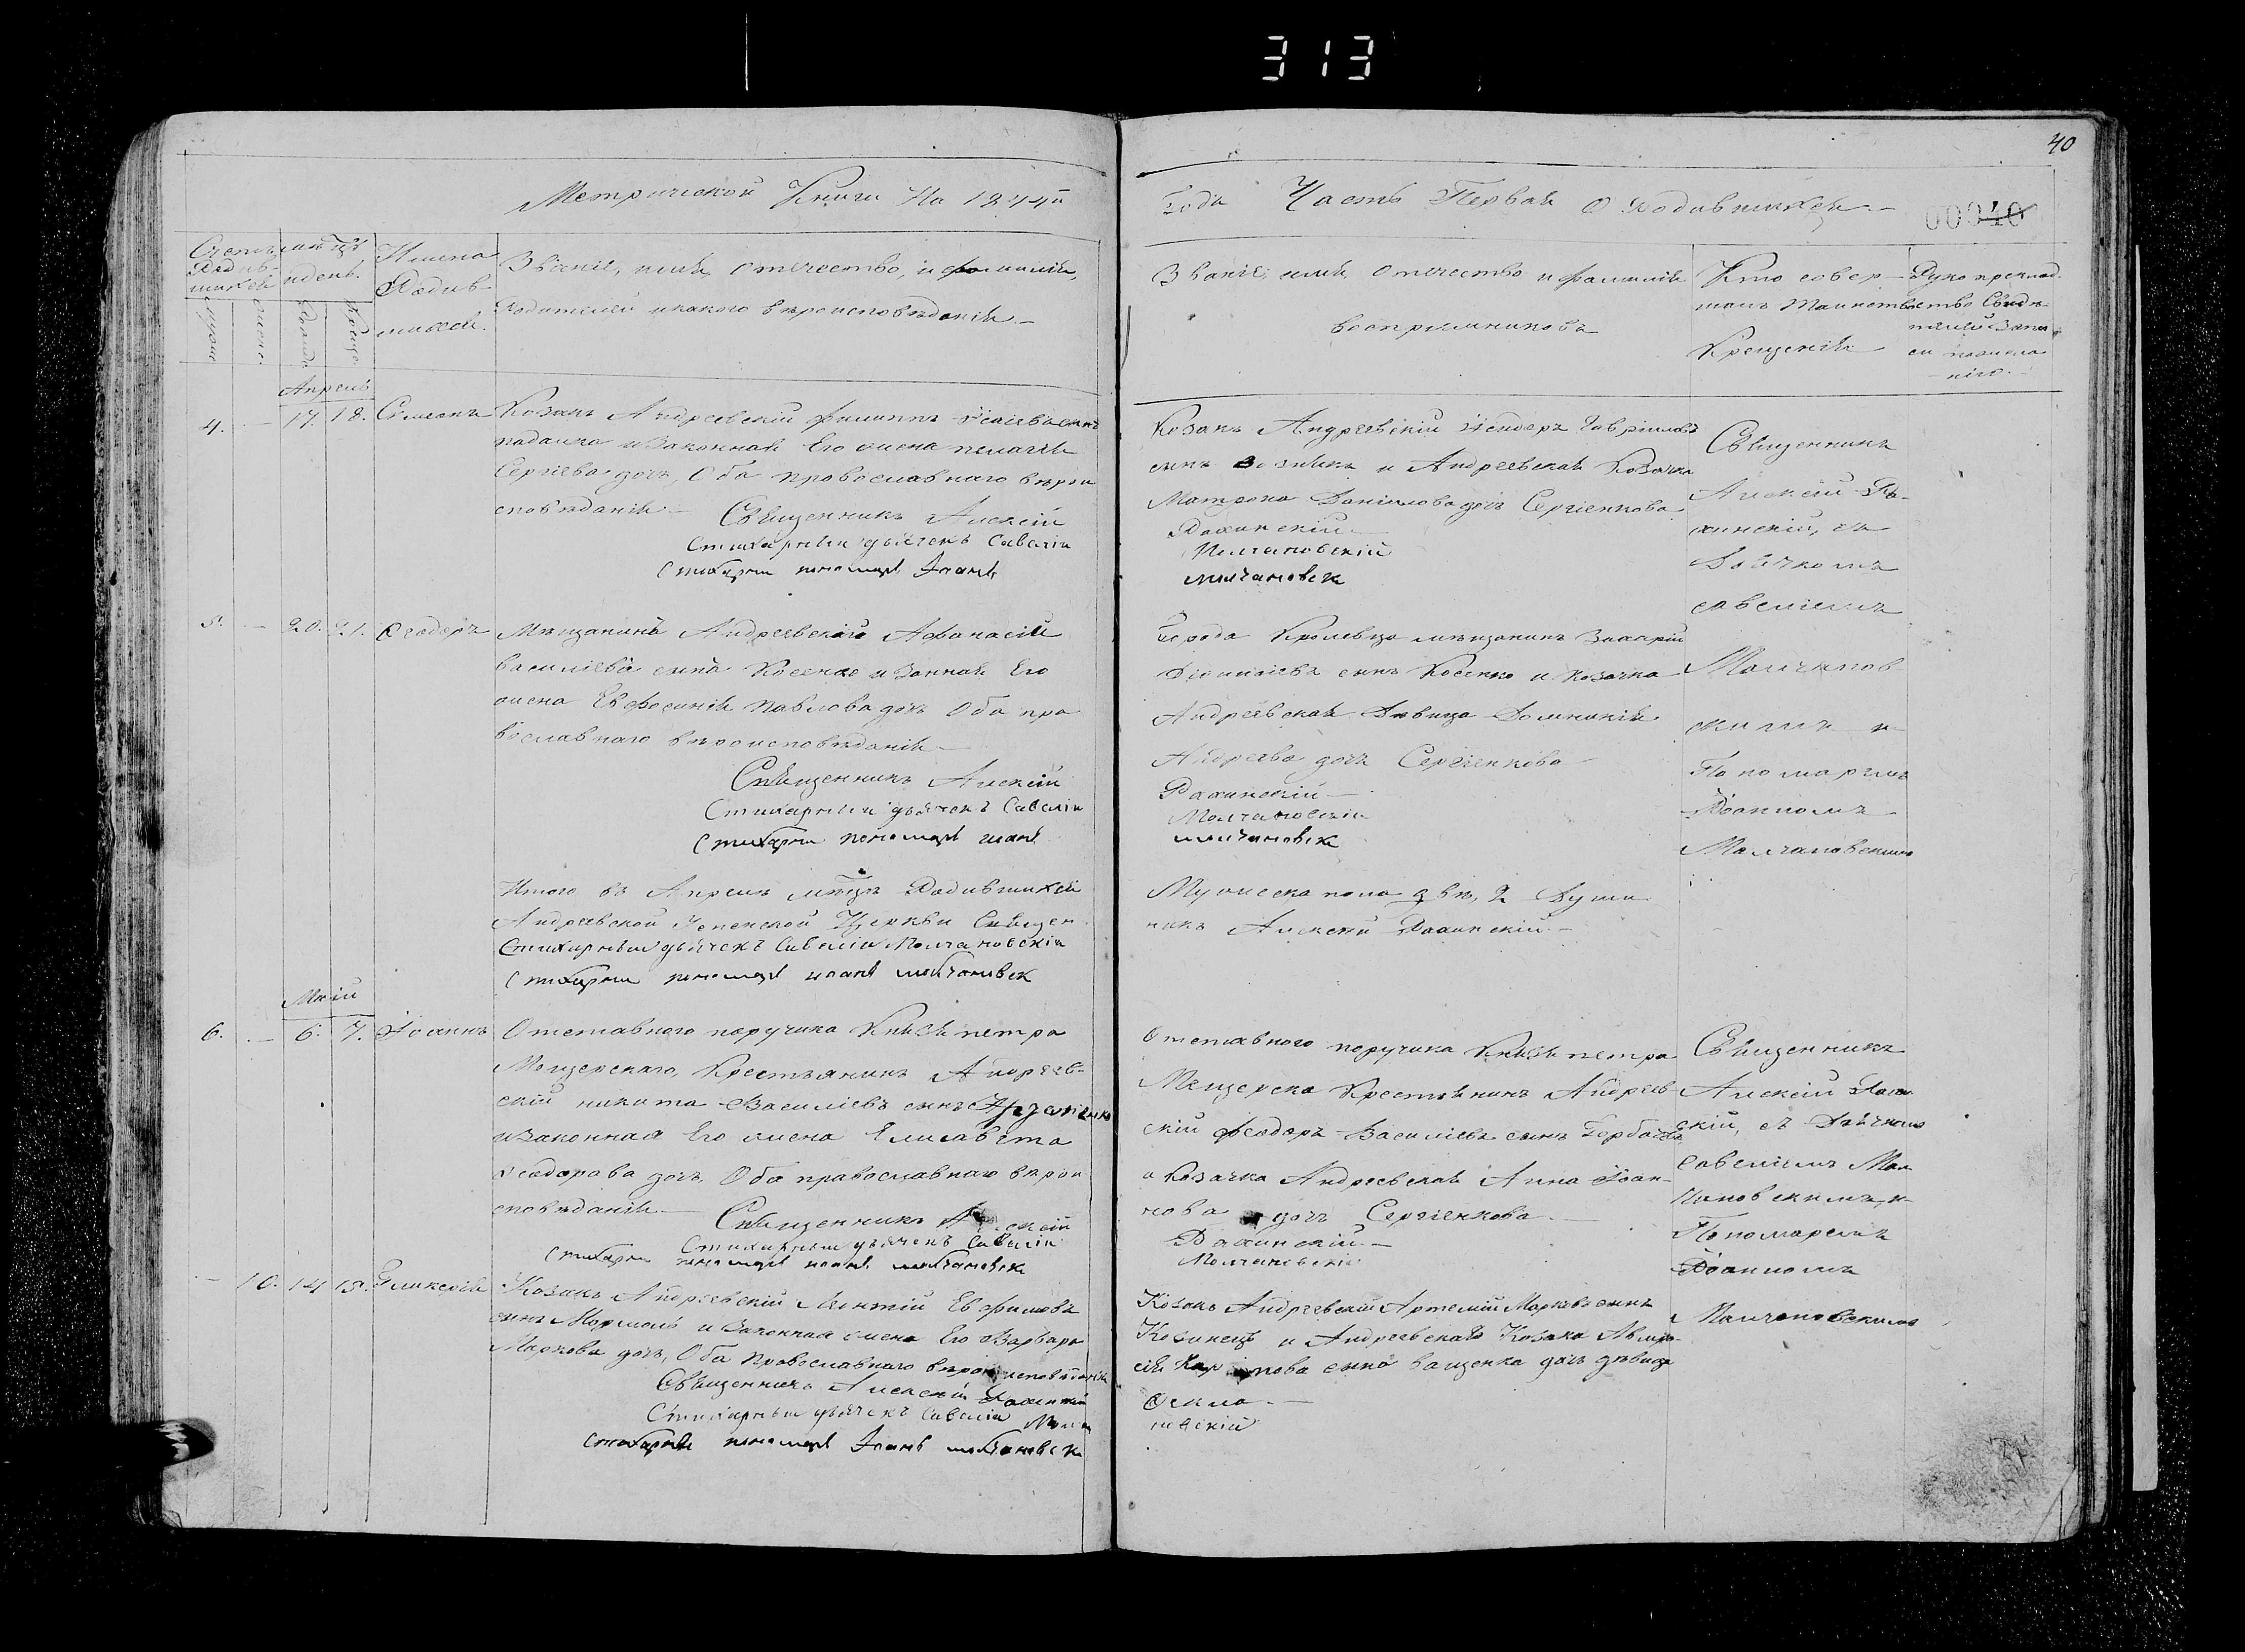 313
40
Метрической Книги На 1844й
Года Часть Первая О Родившихся
00040
Счетъ Родившихся
мѣсяцъ и день.
Имена Родившихся.
Званіе, имя, отчество, и фамилія,
Родителей и какого вѣроисповѣданія
Званіе имя отчество и фамилія
воспріемниковъ
Кто совершалъ таинство
Крещенія
Рукоприкладство свидѣтелей записи по желанію.
Апрель
4. 17. 18. Симеонъ
Козакъ Андреевскій Филиппъ сынъ
и Законная Его жена пелагія
Сергіева дочь, Оба православнаго вѣрои
сповѣданія
Священникъ Алексій
Стихарный дьячекъ Савелій
Стихарни пономарь Іоанъ
Козакъ Андреевскій Гавріиловъ
сынъ и Андреевская Козачка
Матрона Даніилова дочь Сергіенкова
Рахинскій
Молчановскій
молчановск
Священникъ
Алексій Ра-
хинскій, съ
Дьячкомъ
савеліемъ
Молчанов
скимъ и
Пономаремъ
Іоанномъ
Молчановскимъ
5. 20. 21. Феодоръ
Мѣщанинъ Андреевскій Афанасій
Василіевъ сынъ Косенко и Законная Его
жена Евфосинія Павлова дочь Оба пра
вославнаго вѣроисповѣданія
Священникъ Алексій
Стихарный дьячекъ Савелій
Стихарни пономарь иоанъ
Города Кролевца мѣщанинъ Захарій
сынъ Косенко и козачка
Андреевская Дѣвица Домникія
Андреева дочь Сергіенкова
Рахинскій
Молчановскій
молчановск
Итого въ Апрелѣ мѣсяцѣ Родившихся
Андреевской Успенской Церкви Священ
Стихарный дьячекъ Савелій Молчановскій
Стихарни пономарь иоанъ молчановск
Мужеска пола двѣ, 2 Души
никъ Алексій Рахинскій
Май
6. 6. 7. Іоаннъ
Отставного поручика Князя петра
Мещерскаго, Крестьянинъ Андреев-
скій никита Василіевъ сынъ
и законная Его жена Елисавета
Феодорова дочь, Оба православнаго вѣрои
сповѣданія
Священникъ Алексій
Стихарный дьячекъ Савелій
Стихарни пономарь иоанъ молчановск
Отставного поручика Князя петра
Мещерска Крестьянинъ Андреев-
скій Феодоръ Василіевъ сынъ
и Козачка Андреевская Анна Іоан-
нова дочь Сергіенкова
Рахинскій
Молчановскій
Священникъ
Алексій Рахин
скій, съ Дьячкомъ
Савеліемъ Мол
чановскимъ, и
Пономаремъ
Іоанномъ
Молчановскимъ
10. 14 15. Гликерія
Козакъ Андреевскій Леонтій Евфимовъ
сынъ и Законная жена Его Варвара
Маркова дочь, Оба Православнаго вѣроисповѣданія
Священникъ Алексій Рахинскій
Стихарный дьячекъ Савелій Молча
Стихарни пономарь Іоанъ молчановск
Козакъ Андреевскій Артемій Марковъ сынъ
Козинецъ и Андреевскаго Козака
сына ващенка дочь дѣвица
Фекла
новскій